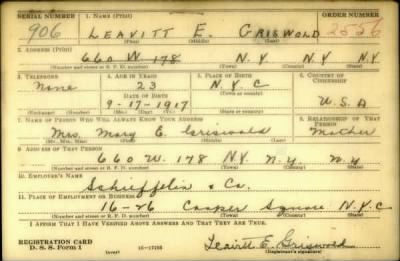 SERIAL NUMBER 1. NAME (Print) ORDER NUMBER
906 LEAVITT E. GRISWOLD 2556
(First) (Middle) (Last)
2. ADDRESS (Print)
660 W. 178 N.Y. N.Y. N.Y.
(Number and street or R. F. D. number) (Town) (County) (State)
3. TELEPHONE 4. AGE IN YEARS 5. PLACE OF BIRTH 6. COUNTRY OF CITIZENSHIP
None 23 N.Y.C
DATE OF BIRTH
9-17-1917 U.S.A
(Exchange) (Number) (Mo.) (Day) (Yr.) (Town or county) (State or country)
7. NAME OF PERSON WHO WILL ALWAYS KNOW YOUR ADDRESS 8. RELATIONSHIP OF THAT PERSON
Mrs. Mary E. Griswold Mother
(Mr., Mrs., Miss) (First) (Middle) (Last)
9. ADDRESS OF THAT PERSON
660 W. 178 N.Y. N.Y. N.Y
(Number and street or R. F. D. number) (Town) (County) (State)
10. EMPLOYER'S NAME
Schieffelin & Co.
11. PLACE OF EMPLOYMENT OR BUSINESS
16-26 Cooper Square N.Y.C
(Number and street or R. F. D. number) (Town) (County) (State)
I AFFIRM THAT I HAVE VERIFIED ABOVE ANSWERS AND THAT THEY ARE TRUE.
REGISTRATION CARD
D. S. S. Form 1 (over) 16-17105 Leavitt E. Griswold
(Registrant's signature)